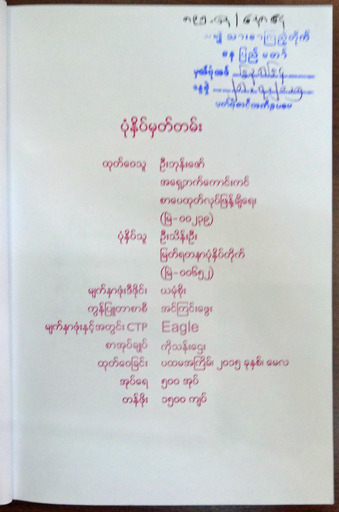 ပုံနှိပ်မှတ်တမ်း
ထုတ်ဝေသူ ဦးဘုန်းဇော်
အရှေ့ဘက်ကောင်းကင်
စာပေထုတ်လုပ်ဖြန့်ချိရေး
(မြဲ-၀၀၂၃၉)
ပုံနှိပ်သူ ဦးသိန်းဦး
မြတ်ရတနာပုံနှိပ်တိုက်
(မြဲ-၀၀၆၅၂)
မျက်နှာဖုံးဒီဇိုင်း ယမုံစိုး
ကွန်ပျူတာစာစီ အင်ကြင်းခွေး
မျက်နှာဖုံးနှင့်အတွင်း CTP Eagle
စာအုပ်ချုပ် ကိုသန်းဌေး
ထုတ်ဝေခြင်း ပထမအကြိမ်၊ ၂၀၁၅ ခုနှစ်၊ မေလ
အုပ်ရေ ၅၀၀ အုပ်
တန်ဖိုး ၁၅၀၀ ကျပ်